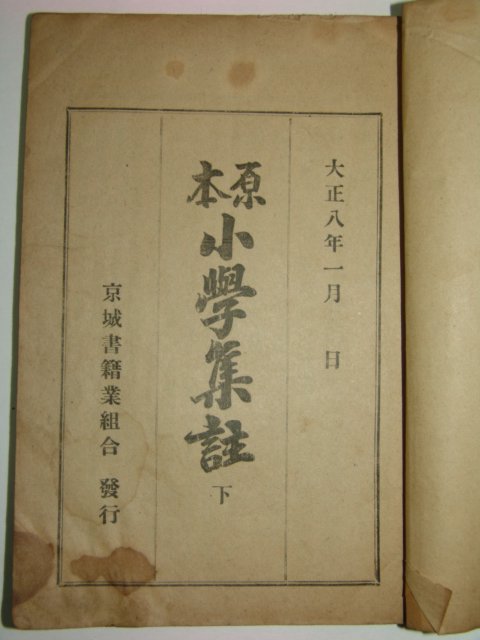 大正八年一月　日
原本
小學集註
下
京城書籍業組合 發行